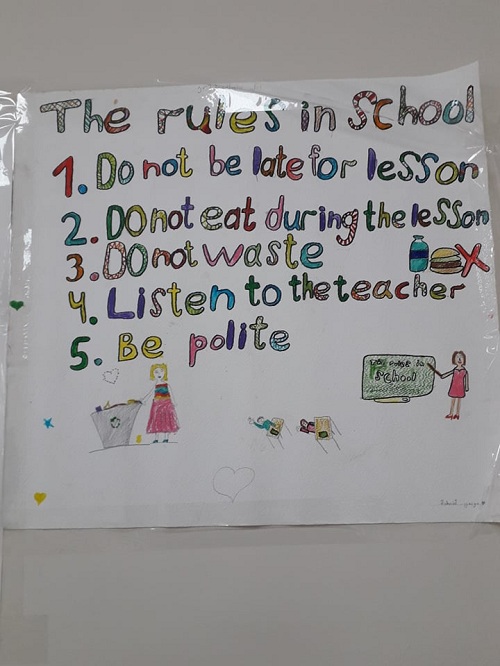 The rules in school
1. Do not be late for lesson
2. DO not eat during the lesson
3. DO not waste
4. Listen to the teacher
5. Be polite
school